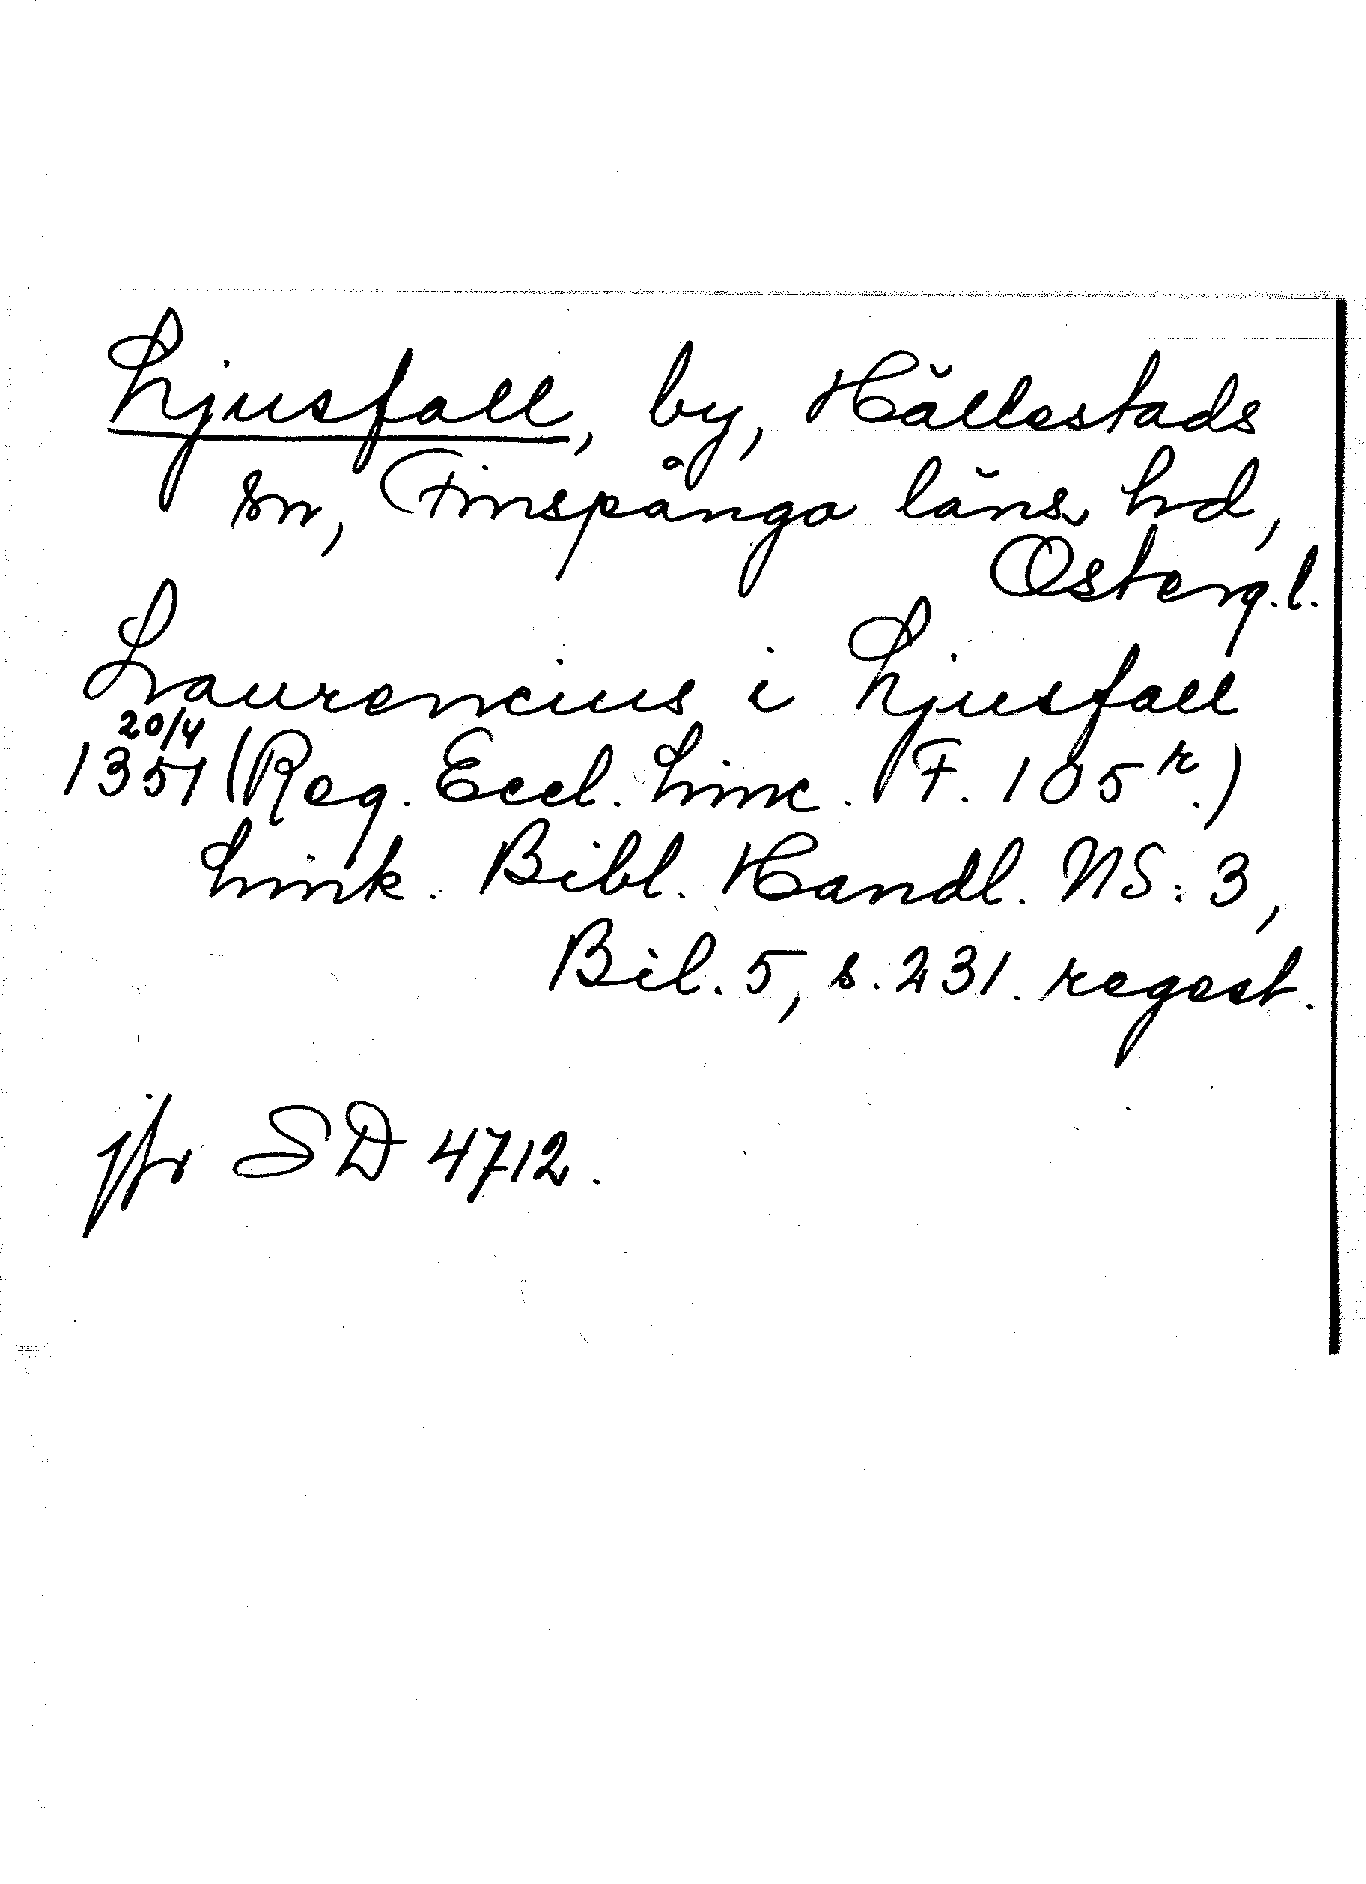 Ljusfall, by, Hällestads
sn, Finspånga läns hd,
Österg.l.
Laurencius i Ljusfall
20/4
1351 (Reg. Eccl. Linc. F. 105r.)
Link. Bibl. Handl. NS: 3,
Bil. 5, s. 231. regest.
jfr SD 4712.